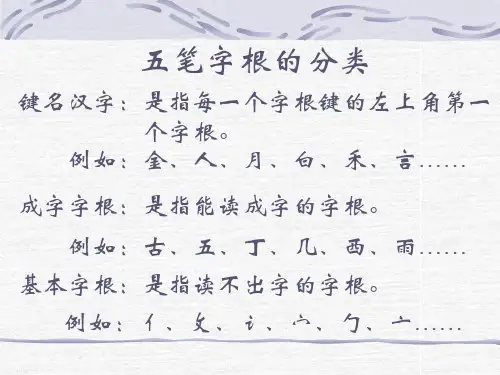 五笔字根的分类
键名汉字：是指每一个字根键的左上角第一
个字根。
例如：金、人、月、白、禾、言……
成字字根：是指能读成字的字根。
例如：古、五、丁、几、西、雨……
基本字根：是指读不出字的字根。
例如：亻、攵、讠、宀、勹、亠……